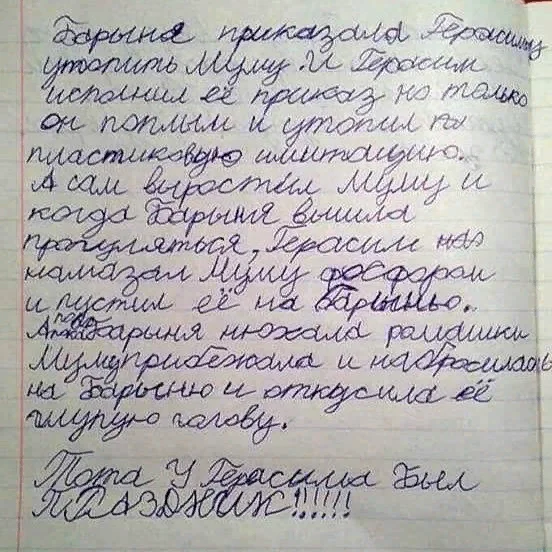 Барыня приказала Герасиму
утопить Муму. И Герасим
исполнил её приказ но только
он поплым и утопил
пластиковую имитацию.
А сам выростел Муму и
когда Барыня вышла
прогуляться, Герасим
намазал Муму фосфаром
и пустил её на барыньо.
А пока Барыня нюхала ромашки
Муму прибежала и набросилась
на Барыню и откусила её
глупую голову.
Тота У Герасима был
ПРАЗДНИК!!!!!!